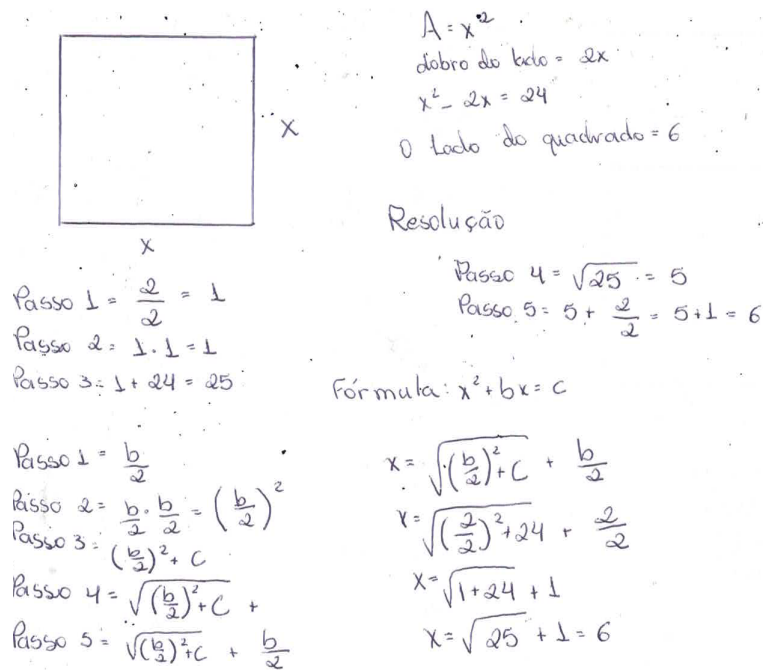 A = x²
dobro do lado = 2x
x² - 2x = 24
O Lado do quadrado = 6
x
x
Resolução
Passo 1 = 2/2 = 1
Passo 2 = 1 . 1 = 1
Passo 3 = 1 + 24 = 25
Passo 4 = √25 = 5
Passo 5 = 5 + 2/2 = 5 + 1 = 6
Fórmula: x² + bx = C
Passo 1 = b/2
Passo 2 = b/2 . b/2 = (b/2)²
Passo 3 = (b/2)² + C
Passo 4 = √((b/2)² + C) +
Passo 5 = √((b/2)² + C) + b/2
x = √((b/2)² + C) + b/2
x = √((2/2)² + 24) + 2/2
x = √(1 + 24) + 1
x = √25 + 1 = 6